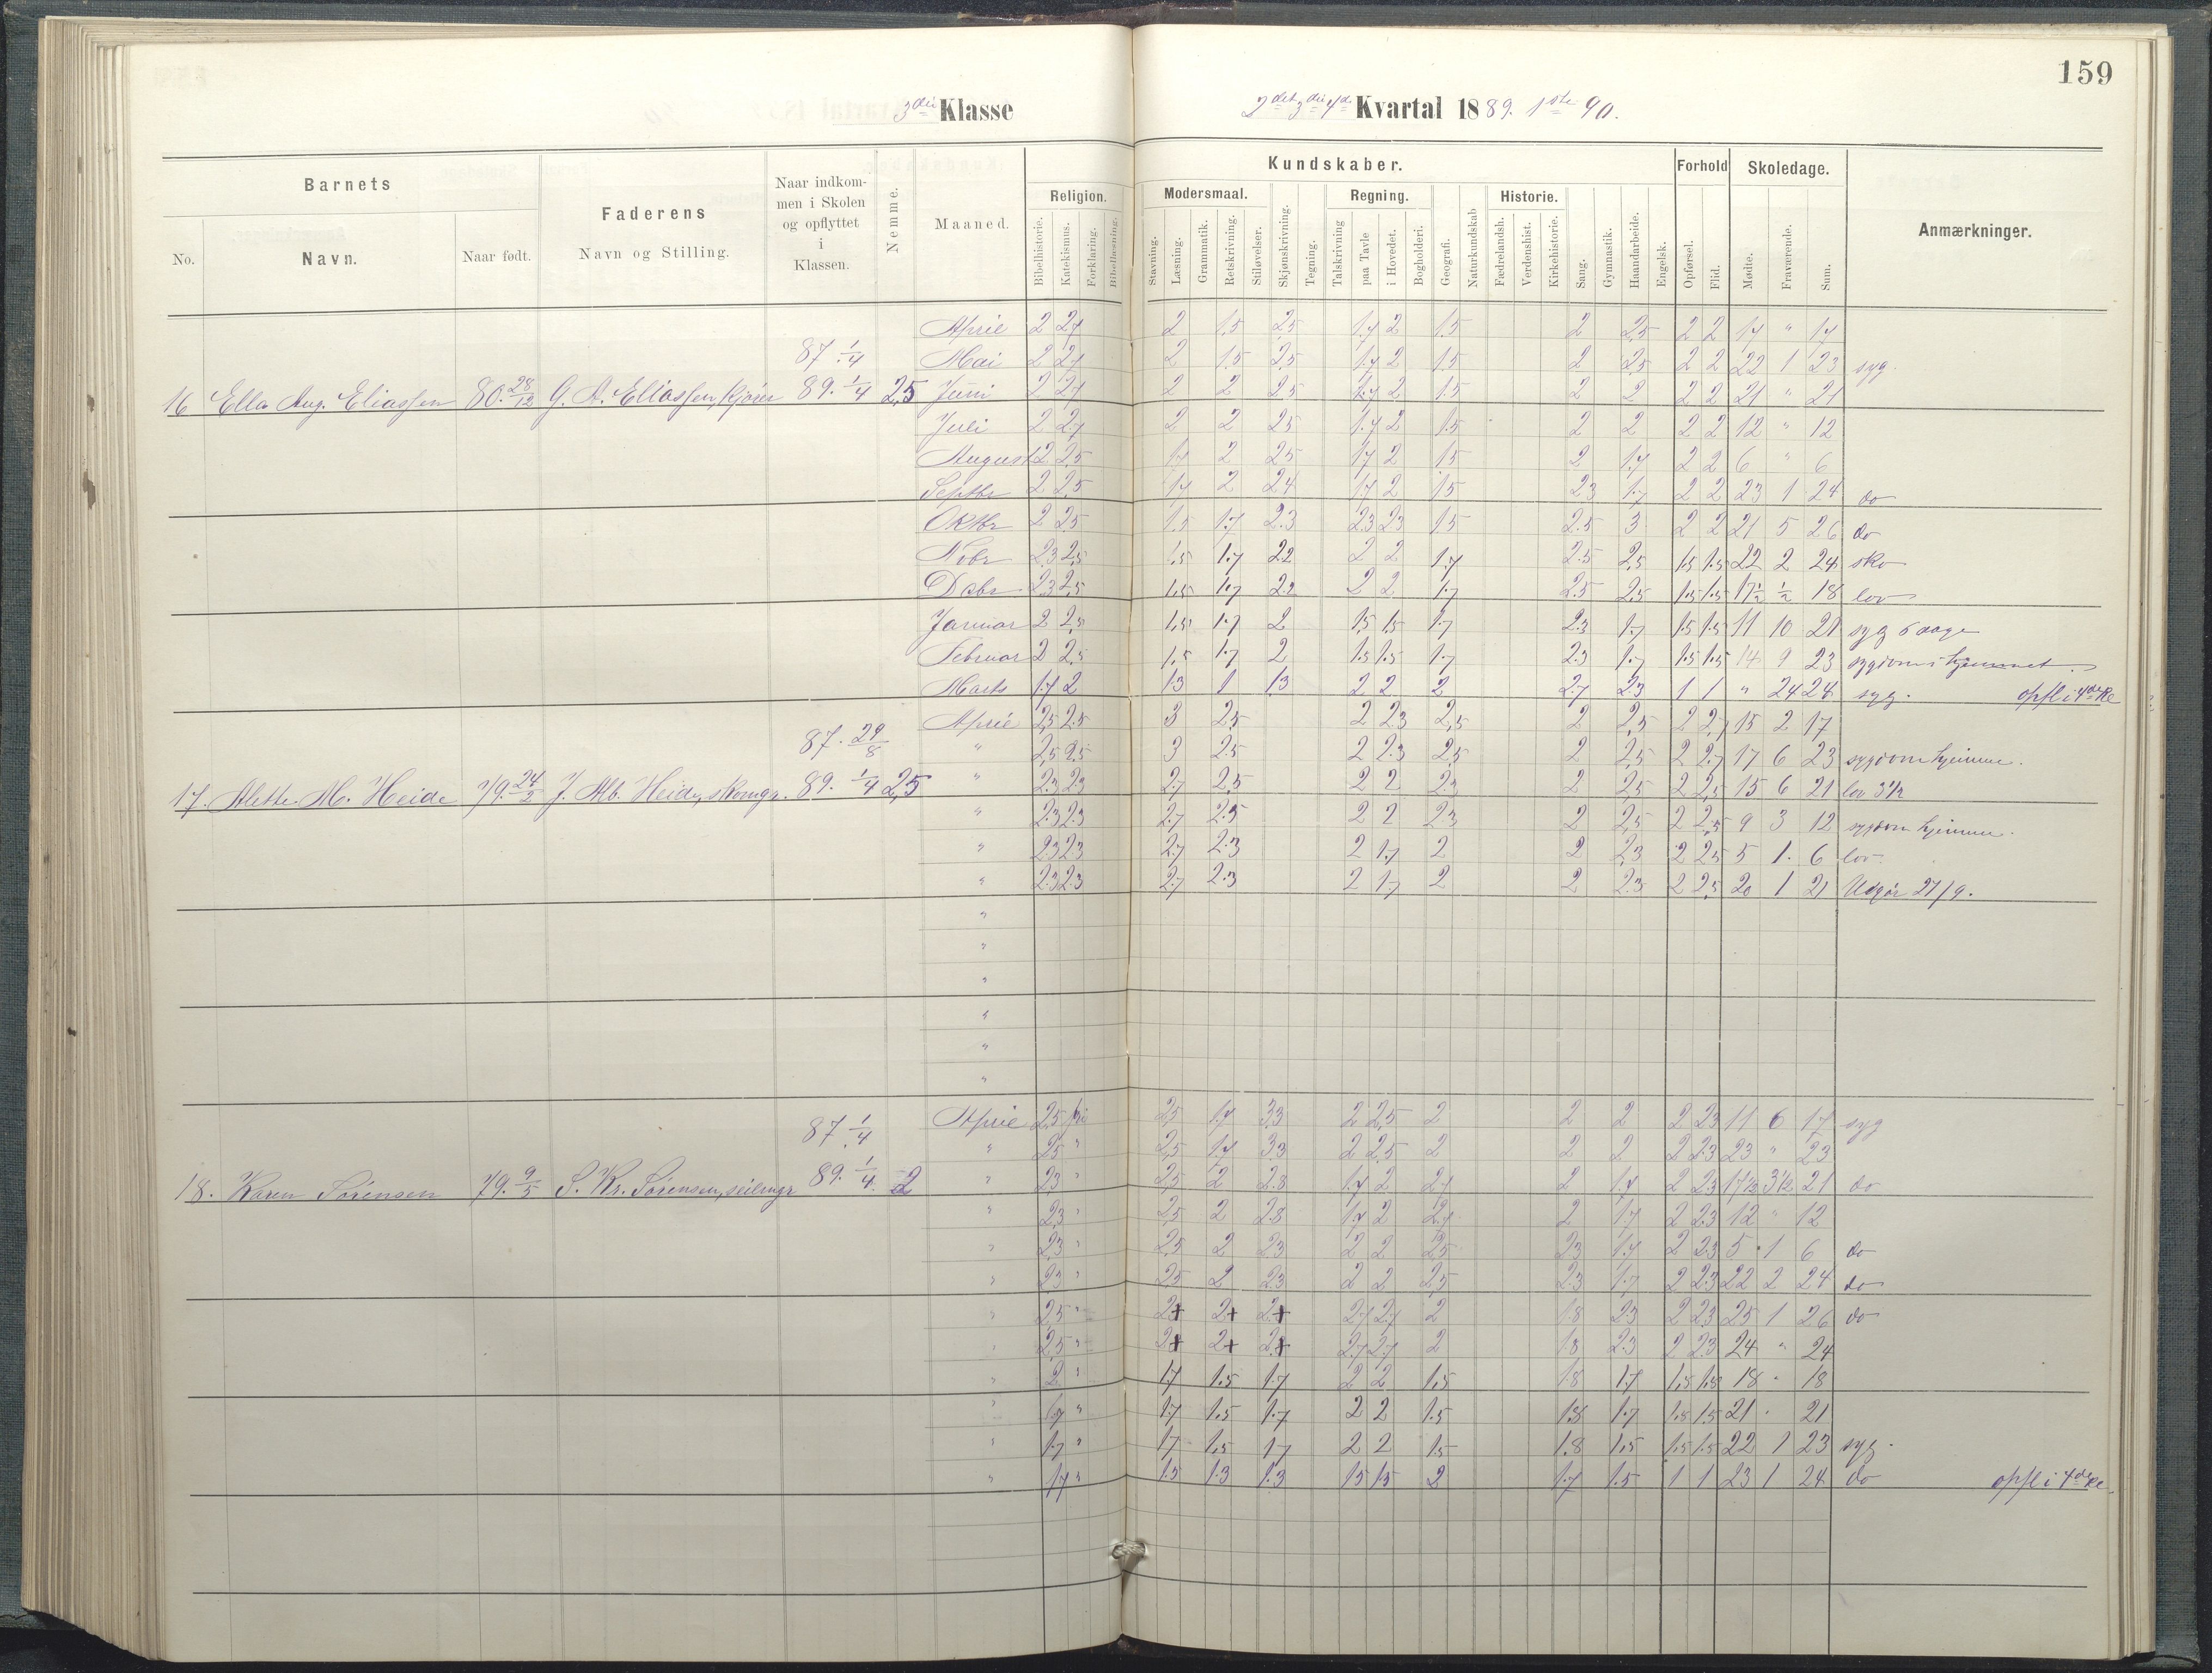 159
3die Klasse
2det 3die 4de Kvartal 1889. 1ste 90.
Barnets
No.
Navn.
Naar født.
Faderens
Navn og Stilling.
Naar indkom-
men i Skolen
og opflyttet
i
Klassen.
Nemme.
Maaned.
Kundskaber.
Religion.
Bibelhistorie.
Katekismus.
Forklaring.
Bibellæsning.
Modersmaal.
Stavning.
Læsning.
Grammatik.
Retskrivning.
Stiløvelser.
Skjønskrivning.
Tegning.
Regning.
Talskrivning
paa Tavle
i Hovedet.
Bogholderi.
Geografi.
Naturkundskab
Historie.
Fædrelandsh.
Verdenshist.
Kirkehistorie.
Sang.
Gymnastik.
Haandarbeide.
Engelsk.
Forhold
Opførsel.
Flid.
Skoledage.
Mødte.
Fraværende.
Sum.
Anmærkninger.
April 2 2,7 2 1.5 2,5 1.7 2 1.5 2 2,5 2 2 17 " 17
87. 1/4 Mai 2 2,7 2 1.5 2,5 1.7 2 1.5 2 2,5 2 2 22 1 23 syg.
16 Ella Aug. Eliassen 80. 28/12 G. A. Eliassen, 89. 1/4 2,5 Juni 2 2,7 2 2 2,5 1.7 2 1.5 2 2 2 2 21 " 21
Juli 2 2,7 2 2 2,5 1.7 2 1.5 2 2 2 2 12 " 12
August 2 2,5 1.7 2 2,5 1.7 2 1.5 2 1.7 2 2 6 " 6
Septbr 2 2,5 1.7 2 2,4 1.7 2 1.5 2,3 1.7 2 2 23 1 24 do
Oktbr 2 2,5 1.5 1.7 2.3 2,3 2,3 1.5 2.5 3 2 2 21 5 26 do
Nobr 2,3 2,5 1.5 1.7 2.2 2 2 1.7 2.5 2,5 1.5 1.5 22 2 24 sko
Debr 2,3 2,5 1,5 1.7 2.2 2 2 1.7 2.5 2,5 1.5 1.5 17½ ½ 18 lov
Januar 2 2,5 1,5 1.7 2 1,5 1.5 1.7 2.3 1.7 1.5 1.5 11 10 21 syg 5 dage
Februar 2 2,5 1,5 1.7 2 1.5 1.5 1.7 2.3 1.7 1.5 1.5 14 9 23 sygdom i hjemmet
Marts 1.7 2 1.3 1 1.3 2 2 2 2.7 2.3 1 1 " 24 24 syg. opfl i 4de Kl
April 2,5 2.5 3 2,5 2 2.3 2,5 2 2,5 2 2,7 15 2 17
87. 29/8 " 2,5 2.5 3 2.5 2 2.3 2,5 2 2,5 2 2,7 17 6 23 sygdom hjemme.
17. Alette M. Heide 79. 24/2 J. Alb. Heide, skomgr. 89. 1/4 2,5 " 2.3 2.3 2.7 2.5 2 2 2.3 2 2.5 2 2,5 15 6 21 lov 3½
" 2.3 2.3 2.7 2.5 2 2 2.3 2 2,5 2 2,5 9 3 12 sygdom hjemme.
" 2.3 2.3 2.7 2.3 2 1.7 2 2 2,3 2 2.5 5 1. 6 lov.
" 2.3 2.3 2.7 2.3 2 1.7 2 2 2.3 2 2,5 20 1 21 Udgår 27/9.
"
"
"
"
"
"
April 2,5 2,5 1.7 3.3 2 2,5 2 2 2 2 2.3 11 6 17 syg
87 1/4 " 2,5 " 2,5 1.7 3.3 2 2,5 2 2 2 2 2.3 23 " 23
18. Karen Sørensen 79. 9/5 S. Kr. Sørensen, seilmgr 89. 1/4. 2 " 2,3 " 2,5 2 2.8 1.7 2 2,7 2 1.7 2 2.3 17½ 3½ 21 do
" 2,3 " 2,5 2 2.8 1.7 2 2.7 2 1.7 2 2.3 12 " 12
" 2,3 " 2,5 2 2.3 2 2 2,5 2.3 1.7 2 2.3 5 1 6 do
" 2,3 " 2,5 2 2.3 2 2 2,5 2.3 1.7 2 2.3 22 2 24 do
" 2,5 " 2+ 2+ 2+ 2,7 2,7 2 1.8 2.3 2 2.3 25 1 26 do
" 2,5 " 2+ 2+ 2+ 2.7 2.7 2 1.8 2.3 2 2.3 24 " 24
" 2 " 1.7 1.5 1.7 2 2 1,5 1.8 1.7 1,5 1.8 18 " 18
" 1.7 " 1.7 1.5 1.7 2 2 1.5 1.8 1.7 1.8 1.5 21 " 21
" 1.7 " 1.7 1.5 1.7 2 2 1.5 1.8 1.5 1.5 1.5 22 1 23 syg.
" 1.7 " 1.3 1.3 1.3 1.5 1.5 2 1.7 1.5 1 1 23 1 24 do opfl i 4de Kl.